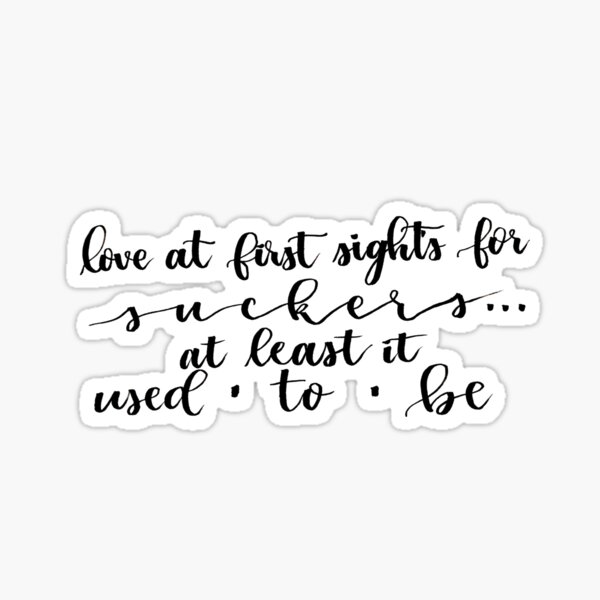 love at first sight's for
suckers...
at least it
used · to · be